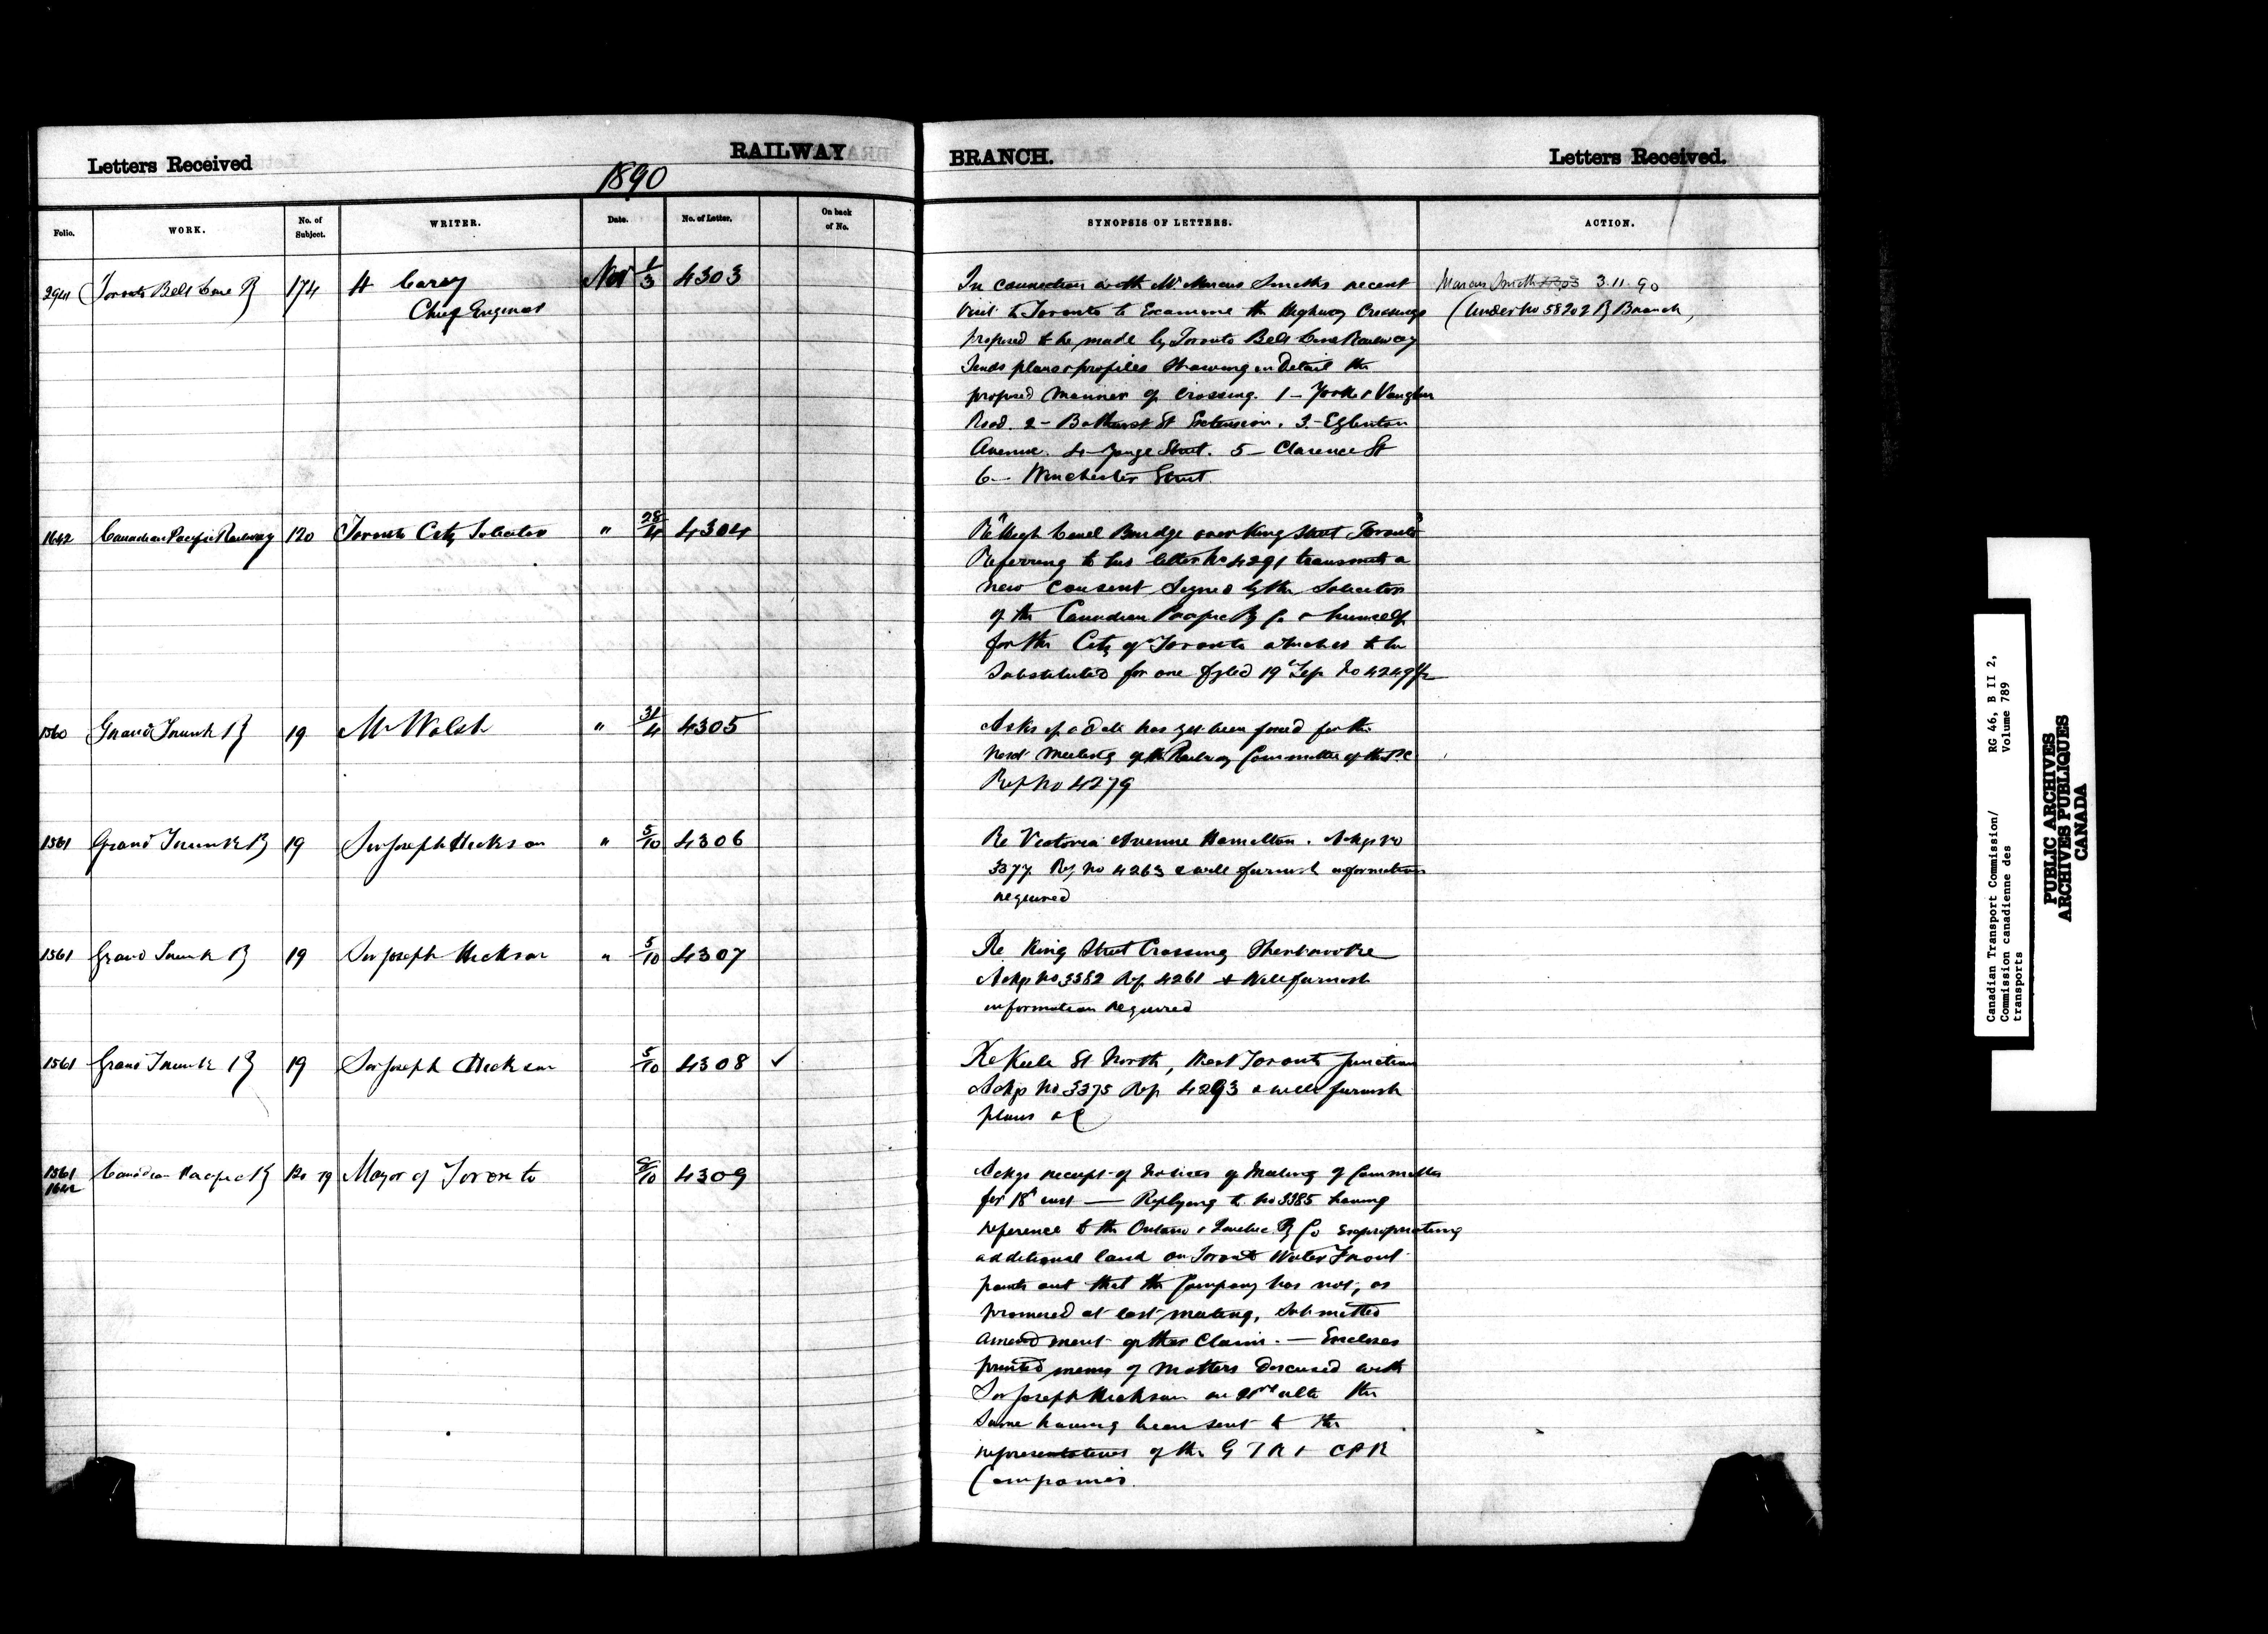 Letters Received
RAILWAY
1890
Folio.
WORK.
No. of Subject.
WRITER.
Date.
No. of Letter.
On back of No.
2941 Toronto Belt Line Ry 174 H Carey Nov 1/3 4303
Chief Engineer
1642 Canadian Pacific Railway 120 Toronto City Solicitor " 28/4 4304
1560 Grand Trunk Ry 19 M Walsh " 31/4 4305
1561 Grand Trunk Ry 19 Sir Joseph Hickson " 5/10 4306
1561 Grand Trunk Ry 19 Sir Joseph Hickson " 5/10 4307
1561 Grand Trunk Ry 19 Sir Joseph Hickson 5/10 4308 ✓
1561 Canadian Pacific Ry 120 19 Mayor of Toronto /10 4309
1642
BRANCH.
Letters Received.
SYNOPSIS OF LETTERS.
ACTION.
In connection with Mr Marcus Smiths recent
visit to Toronto to Examine the Highway Crossings
proposed to be made by Toronto Belt Line Railway
Sends plans & profiles Showing in Detail the
proposed manner of Crossing. 1 - York & Vaughan
Road. 2 - Bathurst St Extension. 3 - Eglinton
Avenue. 4 - Yonge Street. 5 - Clarence St
6 - Winchester Street.
Marcus Smith 3.11.90
(Under No 58202 Ry Branch)
Re "High Level Bridge over King Street Toronto"
Referring to his letter No 4291 transmits a
new consent Signed by the Solicitor
of the Canadian Pacific Ry Co & himself
for the City of Toronto & wishes to be
Substituted for one fyled 19th Sep No 4249 1/2
Asks if a date has yet been fixed for the
next meeting of the Railway Committee of the P.C
Ref No 4279
Re Victoria Avenue Hamilton. Ackgs No
3377 Ref No 4263 & will furnish information
required
Re King Street Crossing Sherbrooke
Ackgs No 3382 Ref 4261 & Will furnish
information required
Re Keele St. North, West Toronto Junction
Ackgs No 3375 Ref 4293 & will furnish
plans &c
Ackgs receipt of Notices of Meeting of Committee
for 18th inst — Replying to No 3385 having
reference to the Ontario & Quebec Ry Co Expropriating
additional land on Toronto Water Front
points out that the Company has not, as
promised at last meeting, Submitted
amendment of their Claim. — Encloses
printed memo of matters Discussed with
Sir Joseph Hickson on ulto the
Same having been sent to the
representatives of the G T R & C P R
Companies.
Canadian Transport Commission/
Commission canadienne des
transports
RG 46, B II 2,
Volume 789
PUBLIC ARCHIVES
ARCHIVES PUBLIQUES
CANADA